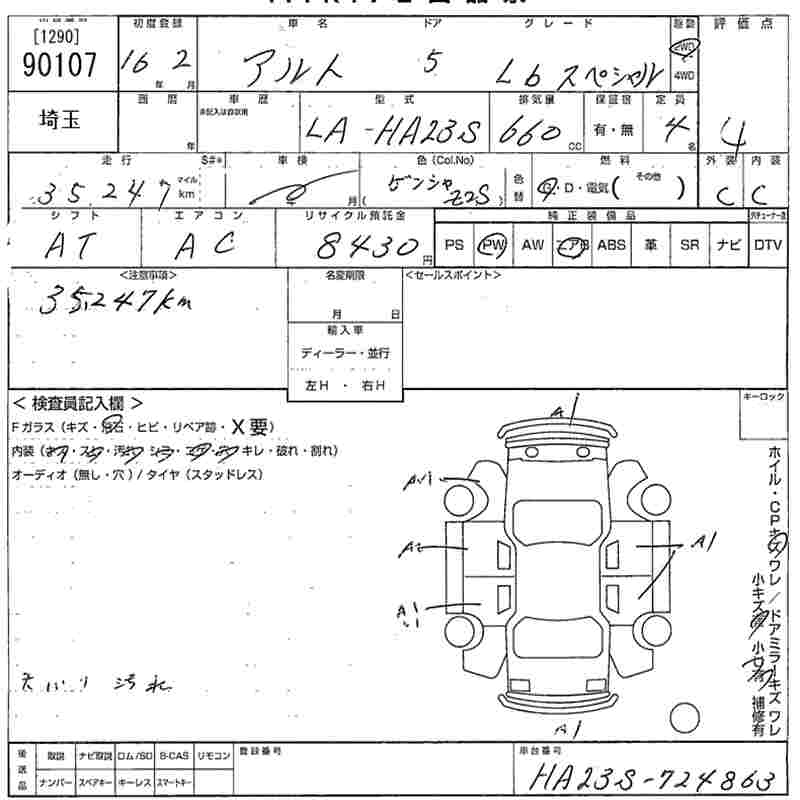 [1290]
90107
初度登録 車名 ドア グレード 駆動 評価点
16年 2月 アルト 5 Lbスペシャル 2WD 4WD
埼玉
画暦 車歴 型式 排気量 保証書 定員
年 未記入は自家用 LA-HA23S 660cc 有・無 4名 4
走行 S#* 車検 色(Col.No) 色替 燃料 外装 内装
35,247 マイル km 年 月 ( Z2S ) G・D・電気( その他 ) C C
シフト エアコン リサイクル預託金 純正装備品
AT AC 8430円 PS PW AW エアB ABS 革 SR ナビ DTV
<注意事項> 名変期限 <セールスポイント>
35,247km 月 日
輸入車
ディーラー・並行
左H ・ 右H
< 検査員記入欄 > キーロック
Fガラス(キズ・飛石・ヒビ・リペア跡・X要)
内装(キレ・破れ・割れ)
オーディオ(無し・穴)/タイヤ(スタッドレス)
A1
A1
A2
A1
A1
A1
ホイル・CPキズワレ/ドアミラーキズワレ
補修有
天バリ 汚れ
後送品 取説 ナビ取説 ロム/SD B-CAS リモコン 登録番号 車台番号
ナンバー スペアキー キーレス スマートキー HA23S-724863